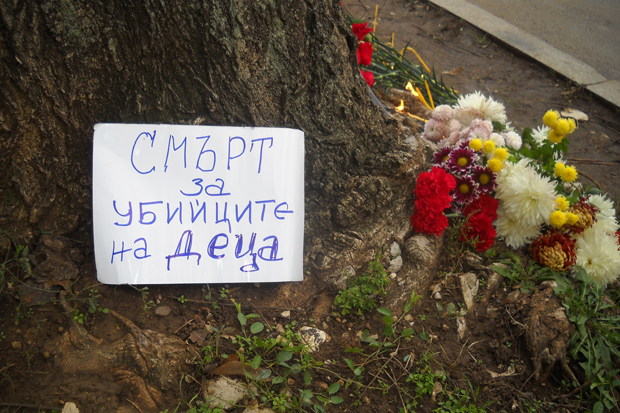 СМЪРТ
за
УБИЙЦИТЕ
на Деца